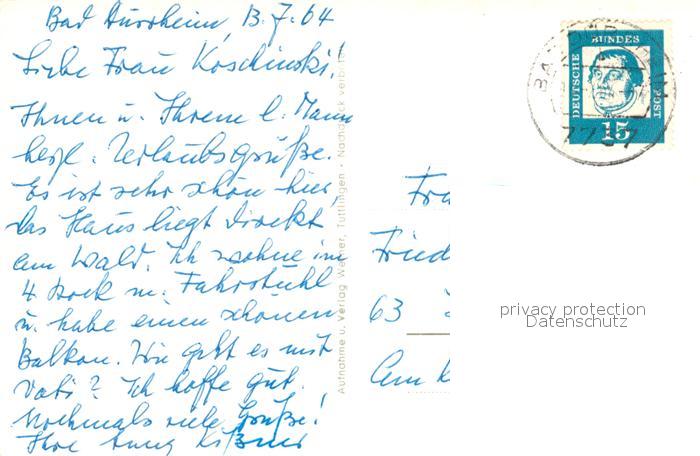 Bad Dürrheim, 13.7.64
Liebe Frau Koschinski!
Ihnen u. Ihrem l. Mann
herzl. Urlaubsgrüße.
Es ist sehr schön hier,
das Haus liegt direkt
am Wald. Ich wohne im
4. Stock m. Fahrstuhl
u. habe einen schönen
Balkon. Wie geht es mit
Vati? Ich hoffe gut.
Nochmals viele Grüße!
Ihre
Aufnahme u. Verlag Werner, Tuttlingen · Nachdruck verboten
DEUTSCHE BUNDES POST
15
7737
Fra
Fried
63
Am
privacy protection
Datenschutz